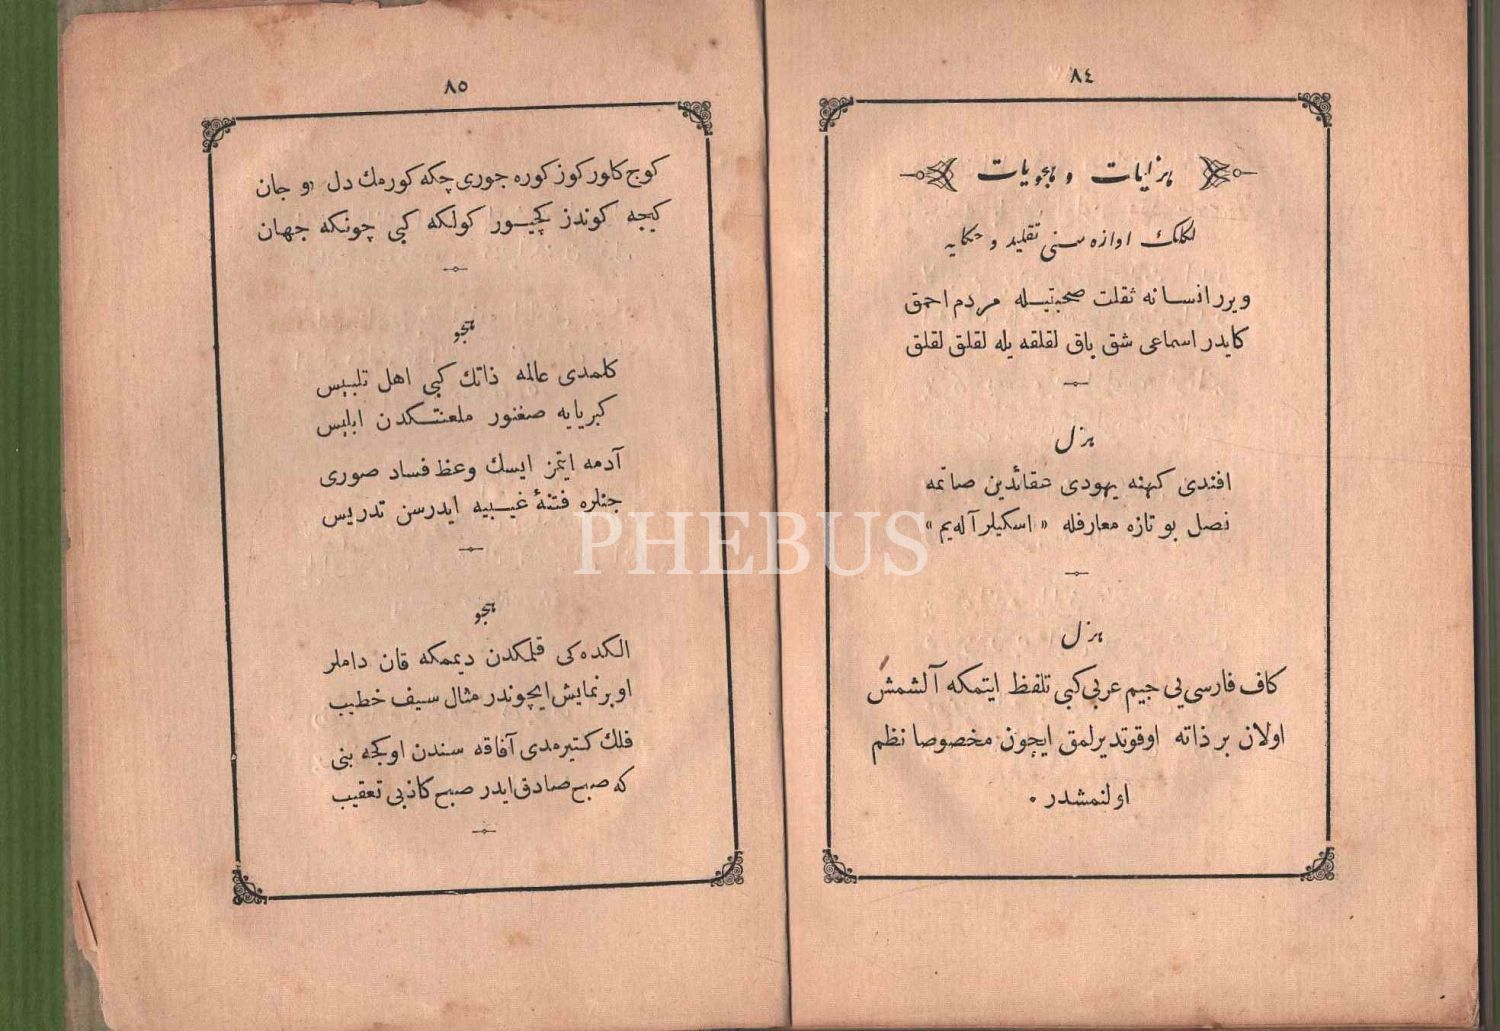 ٨٤
هزلیات و هجویات
لكلكك اوازه سنی تقلید و حكایه
ویرر انسانه ثقلت صحبتیله مردم احمق
كایدر اسماعی شق باق لقلقه یله لقلق لقلق
هزل
افندی كهنه یهودی عقائدین صاتمه
نصل بو تازه معارفله « اسكیلر آله یم »
هزل
كاف فارسی یی جیم عربی كبی تلفظ ایتمكه آلشمش
اولان بر ذاته اوقوتدیرلمق ایچون مخصوصا نظم
اولنمشدر .
٨٥
كوج كلور كوز كوره جوری چكه كورمك دل و جان
كیجه كوندز كچیور كولكه كبی چونكه جهان
هجو
كلمدی عالمه ذاتك كبی اهل تلبیس
كبریایه صغنور ملعنتكدن ابلیس
آدمه ایتمز ایسك وعظ فساد صوری
جنلره فتنهٔ غیبیه ایدرسن تدریس
هجو
الكده كی قلمكدن دیممكه قان داملر
او بر نمایش ایچوندر مثال سیف خطیب
فلك كتیرمدی آفاقه سندن اوكجه بنی
كه صبح صادق ایدر صبح كاذبی تعقیب
PHEBUS